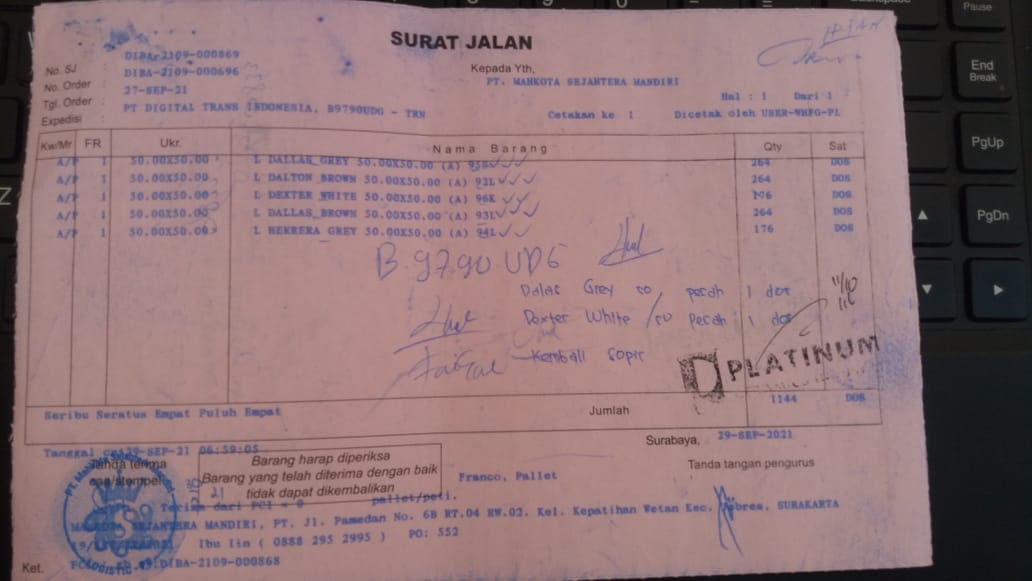 SURAT JALAN
No. SJ : DIBA-2109-000869
No. Order : DIBA-2109-000696
Tgl. Order : 27-SEP-21
Expedisi : PT DIGITAL TRANS INDONESIA, B9790UDG - TRN
Kepada Yth,
PT. MAHKOTA SEJAHTERA MANDIRI
Hal : 1 Dari 1
Cetakan ke 1 Dicetak oleh USER-WHFG-P1
Kw/Mr FR Ukr. Nama Barang Qty Sat
A/P 1 50.00X50.00 L DALLAS GREY 50.00X50.00 (A) 264 DOS
A/P 1 50.00X50.00 L DALTON BROWN 50.00X50.00 (A) 92L 264 DOS
A/P 1 50.00X50.00 L DEXTER WHITE 50.00X50.00 (A) 96K 176 DOS
A/P 1 50.00X50.00 L DALLAS BROWN 50.00X50.00 (A) 93L 264 DOS
A/P 1 50.00X50.00 L HERRERA GREY 50.00X50.00 (A) 94L 176 DOS
B 9790 UDG
Dalas Grey 50 pecah 1 dos
Dexter White /50 pecah 1 dos
Kembali sopir
PLATINUM
Seribu Seratus Empat Puluh Empat Jumlah 1144 DOS
Surabaya, 29-SEP-2021
Tanggal 29-SEP-21 06:59:05
Tanda terima
cap/stempel
Barang harap diperiksa
Barang yang telah diterima dengan baik
tidak dapat dikembalikan
Franco, Pallet
Tanda tangan pengurus
Terima dari PCI = 0 pallet/peti.
MAHKOTA SEJAHTERA MANDIRI, PT. Jl. Pamedan No. 6B RT.04 RW.02. Kel. Kepatihan Wetan Kec. Jebres, SURAKARTA
Ibu Iin ( 0888 295 2995 ) PO: 552
Ket. DIBA-2109-000868